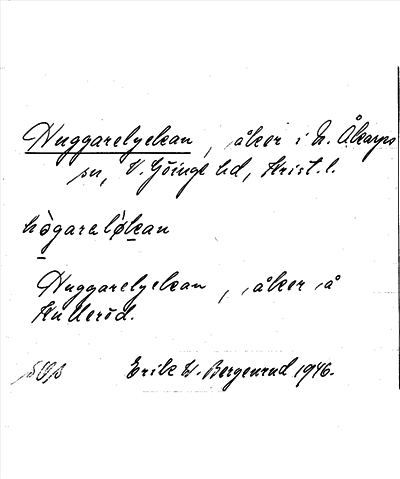 Huggarelyckan, åker i N. Åkarps
sn, V. Göinge hd, Krist. l.
hògaralỳkan
Huggarelyckan, åker å
Kulleröd.
Erik W. Bergenrud 1946.